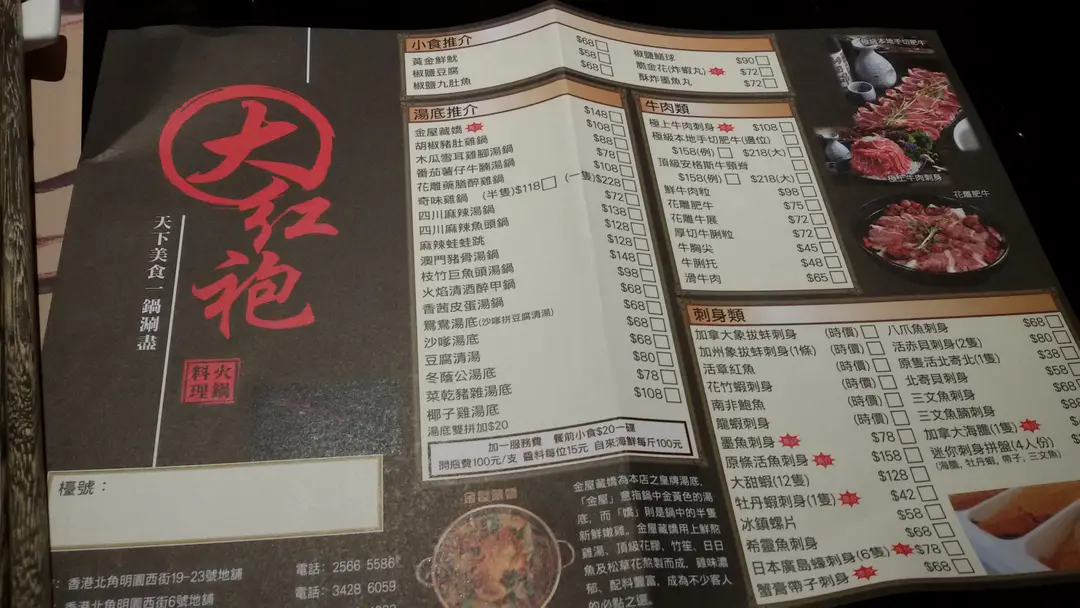 大紅袍
天下美食一鍋涮盡
火鍋
料理
檯號：
香港北角明園西街19-23號地舖 電話: 2566 5586
香港北角明園西街6號地舖 電話: 3428 6059
小食推介
黃金鮮魷 $68
椒鹽豆腐 $58
椒鹽九肚魚 $68
椒鹽鱔球 $90
脆金花(炸蝦丸) $72
酥炸墨魚丸 $72
湯底推介
金屋藏嬌 $148
胡椒豬肚雞鍋 $108
木瓜雪耳雞腳湯鍋 $88
番茄薯仔牛腩湯鍋 $78
花雕藥膳醉雞鍋 $108
奇味雞鍋 (半隻)$118 (一隻)$228
四川麻辣湯鍋 $72
四川麻辣魚頭鍋 $138
麻辣蛙蛙跳 $128
澳門豬骨湯鍋 $128
枝竹巨魚頭湯鍋 $148
火焰清酒醉甲鍋 $98
香茜皮蛋湯鍋 $68
鴛鴦湯底(沙嗲拼豆腐清湯) $68
沙嗲湯底 $68
豆腐清湯 $68
冬蔭公湯底 $80
菜乾豬雜湯底 $78
椰子雞湯底 $108
湯底雙拼加$20
加一服務費 餐前小食$20一碟
開瓶費100元/支 醬料每位15元 自來海鮮每斤100元
金屋藏嬌
金屋藏嬌為本店之皇牌湯底，
「金屋」意指鍋中金黃色的湯
底，而「嬌」則是鍋中的半隻
新鮮嫩雞。金屋藏嬌用上鮮熬
雞湯、頂級花膠、竹笙、日日
魚及松草花熬製而成，雞味濃
郁、配料豐富，成為不少客人
的必點之選。
牛肉類
極上牛肉刺身 $108
極級本地手切肥牛(邊位)
$158(例) $218(大)
頂級安格斯牛頸脊
$158(例) $218(大)
鮮牛肉粒 $98
花雕肥牛 $75
花雕牛展 $72
厚切牛脷粒 $72
牛胸尖 $45
牛脷托 $48
滑牛肉 $65
極級本地手切肥牛
極上牛肉刺身
花雕肥牛
刺身類
加拿大象拔蚌刺身 (時價)
加州象拔蚌刺身(1條) (時價)
活章紅魚 (時價)
花竹蝦刺身 (時價)
南非鮑魚 (時價)
龍蝦刺身 (時價)
墨魚刺身 $78
原條活魚刺身 $158
大甜蝦(12隻) $128
牡丹蝦刺身(1隻) $42
冰鎮螺片 $58
希靈魚刺身 $68
日本廣島蠔刺身(6隻) $78
蟹膏帶子刺身 $68
八爪魚刺身 $68
活赤貝刺身(2隻) $80
原隻活北寄北(1隻) $38
北寄貝刺身 $58
三文魚刺身 $68
三文魚腩刺身
加拿大海膽(1隻)
迷你刺身拼盤(4人份)
(海膽, 牡丹蝦, 帶子, 三文魚)